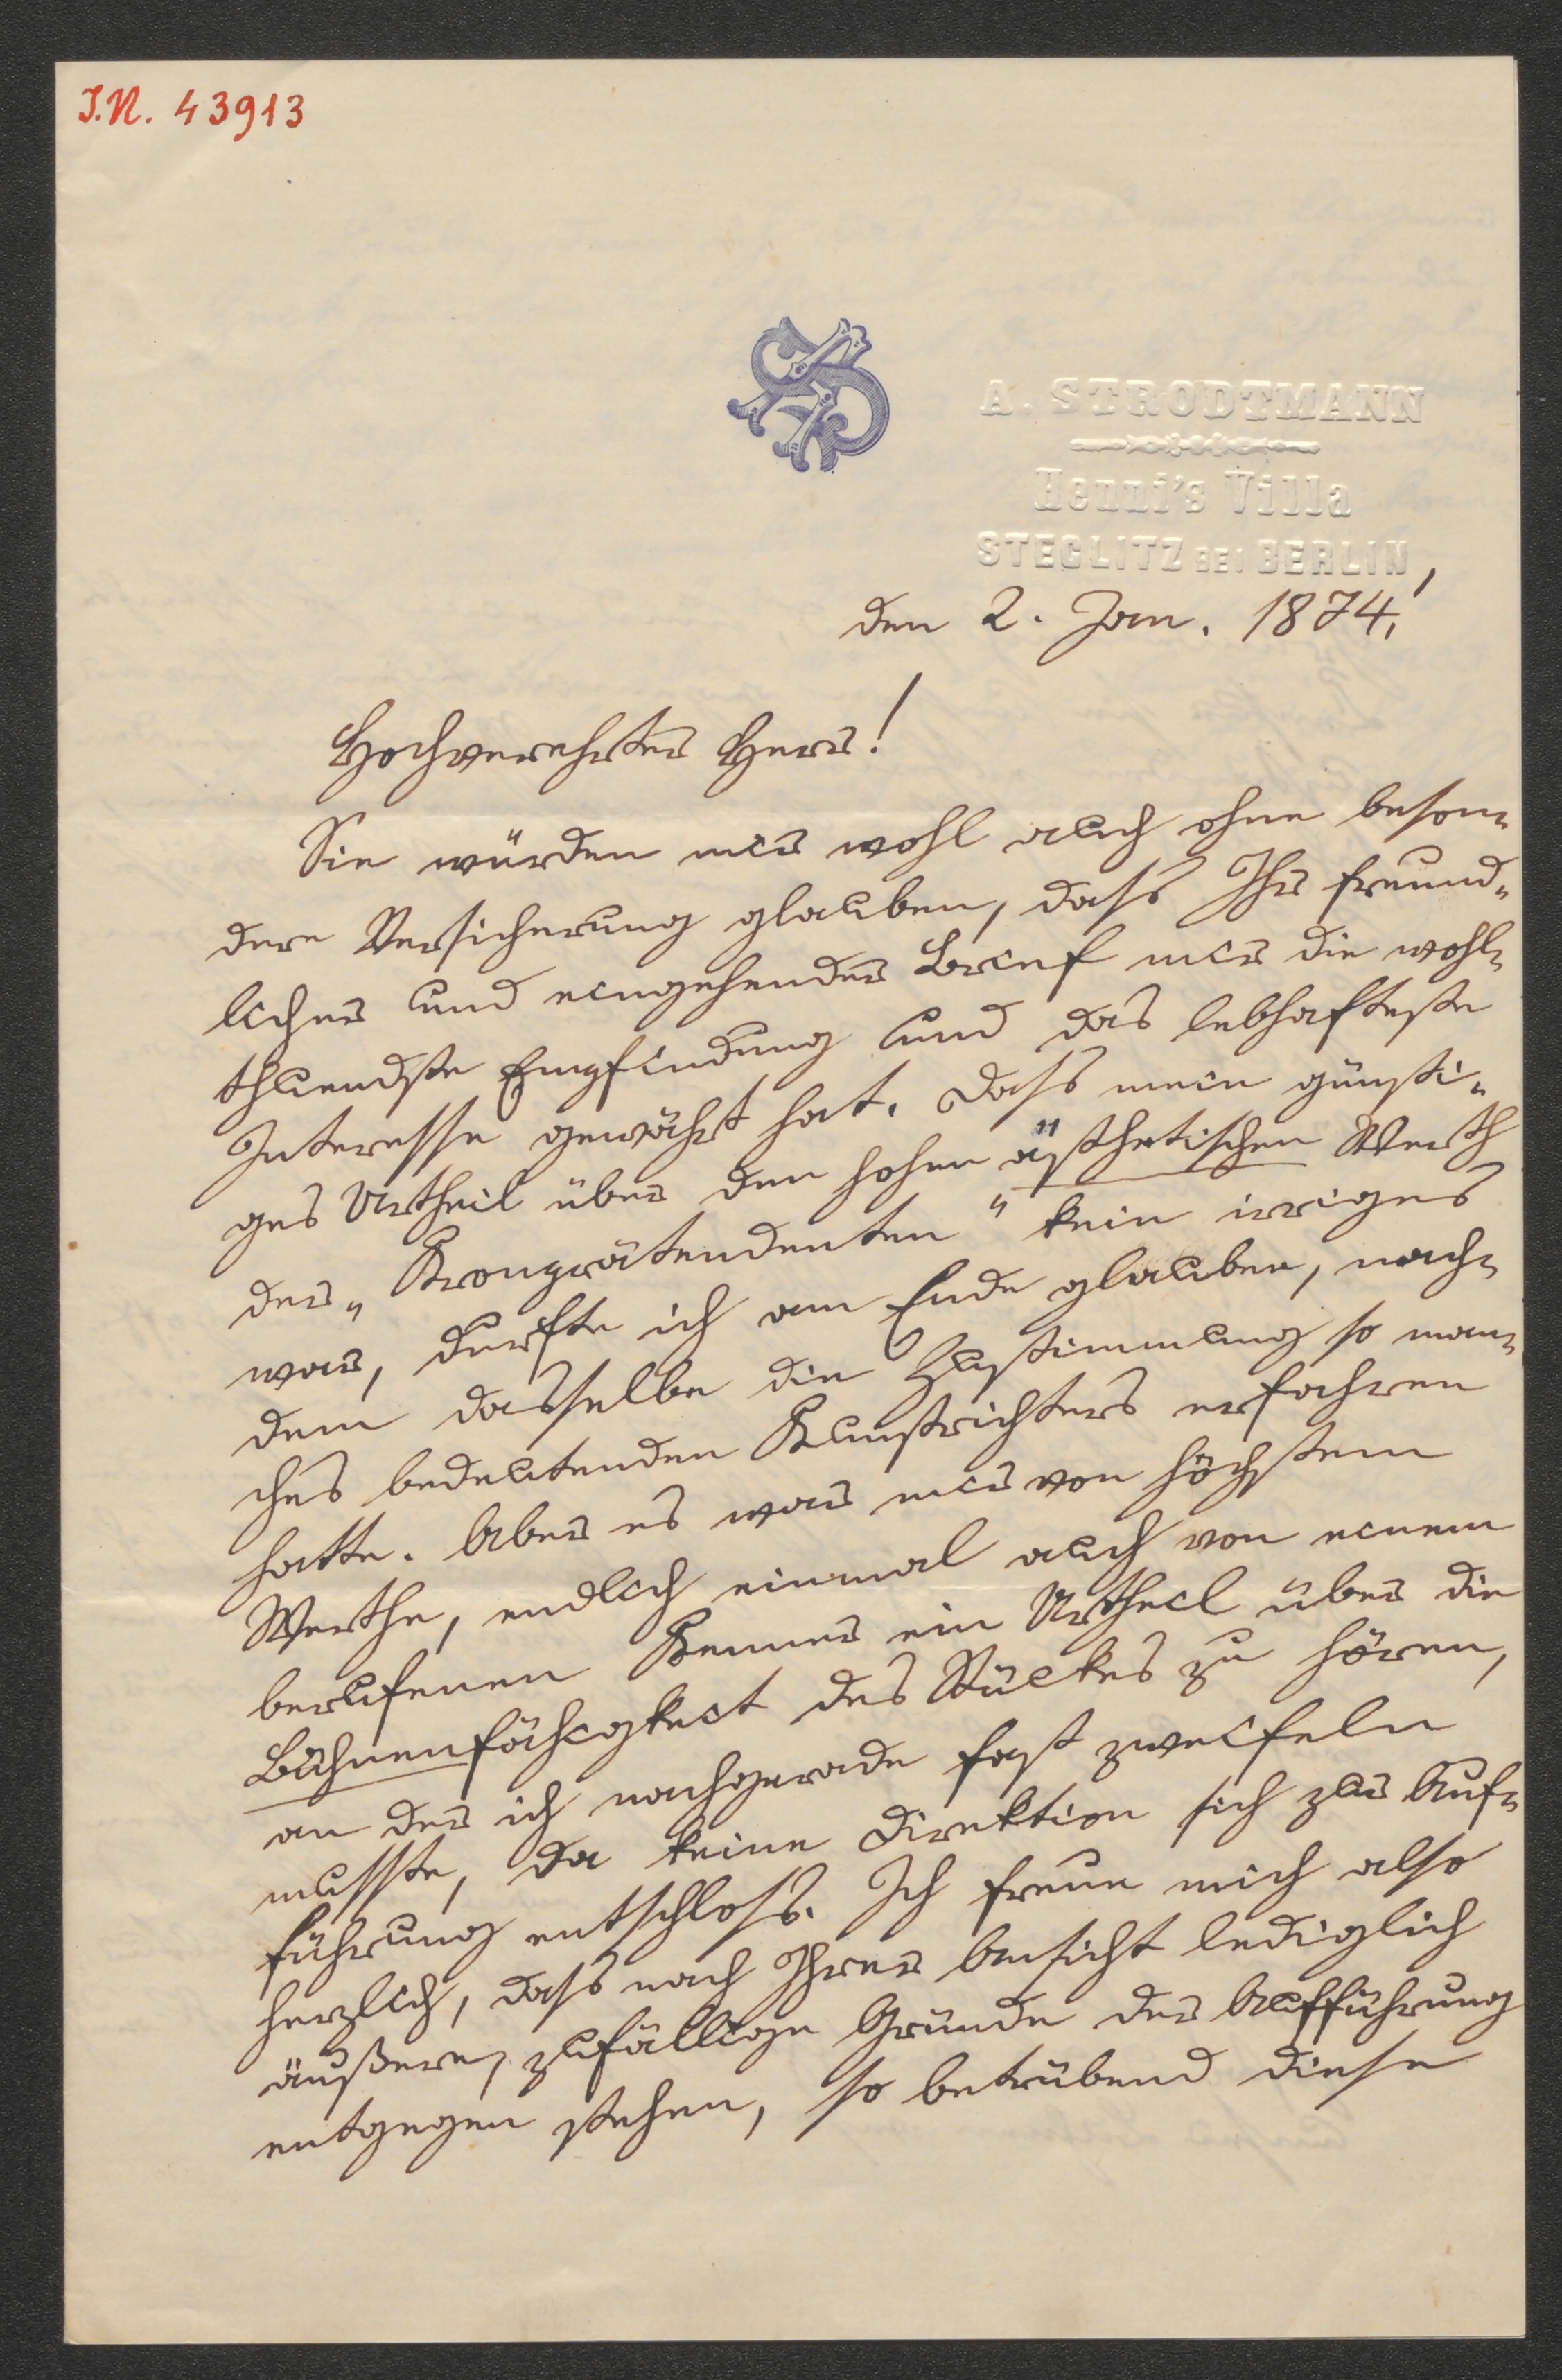 I.N. 43913
A. STRODTMANN
Henni's Villa
STEGLITZ BEI BERLIN,
den 2. Jan. 1874.
Hochverehrter Herr!
Sie würden mir wohl auch ohne beson-
dere Versicherung glauben, dass Ihr freund-
licher und eingehender Brief mir die wohl-
thuendste Empfindung und das lebhafteste
Interesse gewährt hat. Dass mein günsti-
ges Urtheil über den hohen ästhetischen Werth
der „Kronprätendenten" kein irriges
war, durfte ich am Ende glauben, nach-
dem dasselbe die Zustimmung so man-
ches bedeutenden Kunstrichters erfahren
hatte. Aber es war mir von höchstem
Werthe, endlich einmal auch von einem
berufenen Kenner ein Urtheil über die
Bühnenfähigkeit des Stückes zu hören,
an der ich nachgerade fast zweifeln
musste, da keine Direktion sich zur Auf-
führung entschloss. Ich freue mich also
herzlich, dass nach Ihrer Ansicht lediglich
äußere, zufällige Gründe der Aufführung
entgegen stehen, so betrübend diese